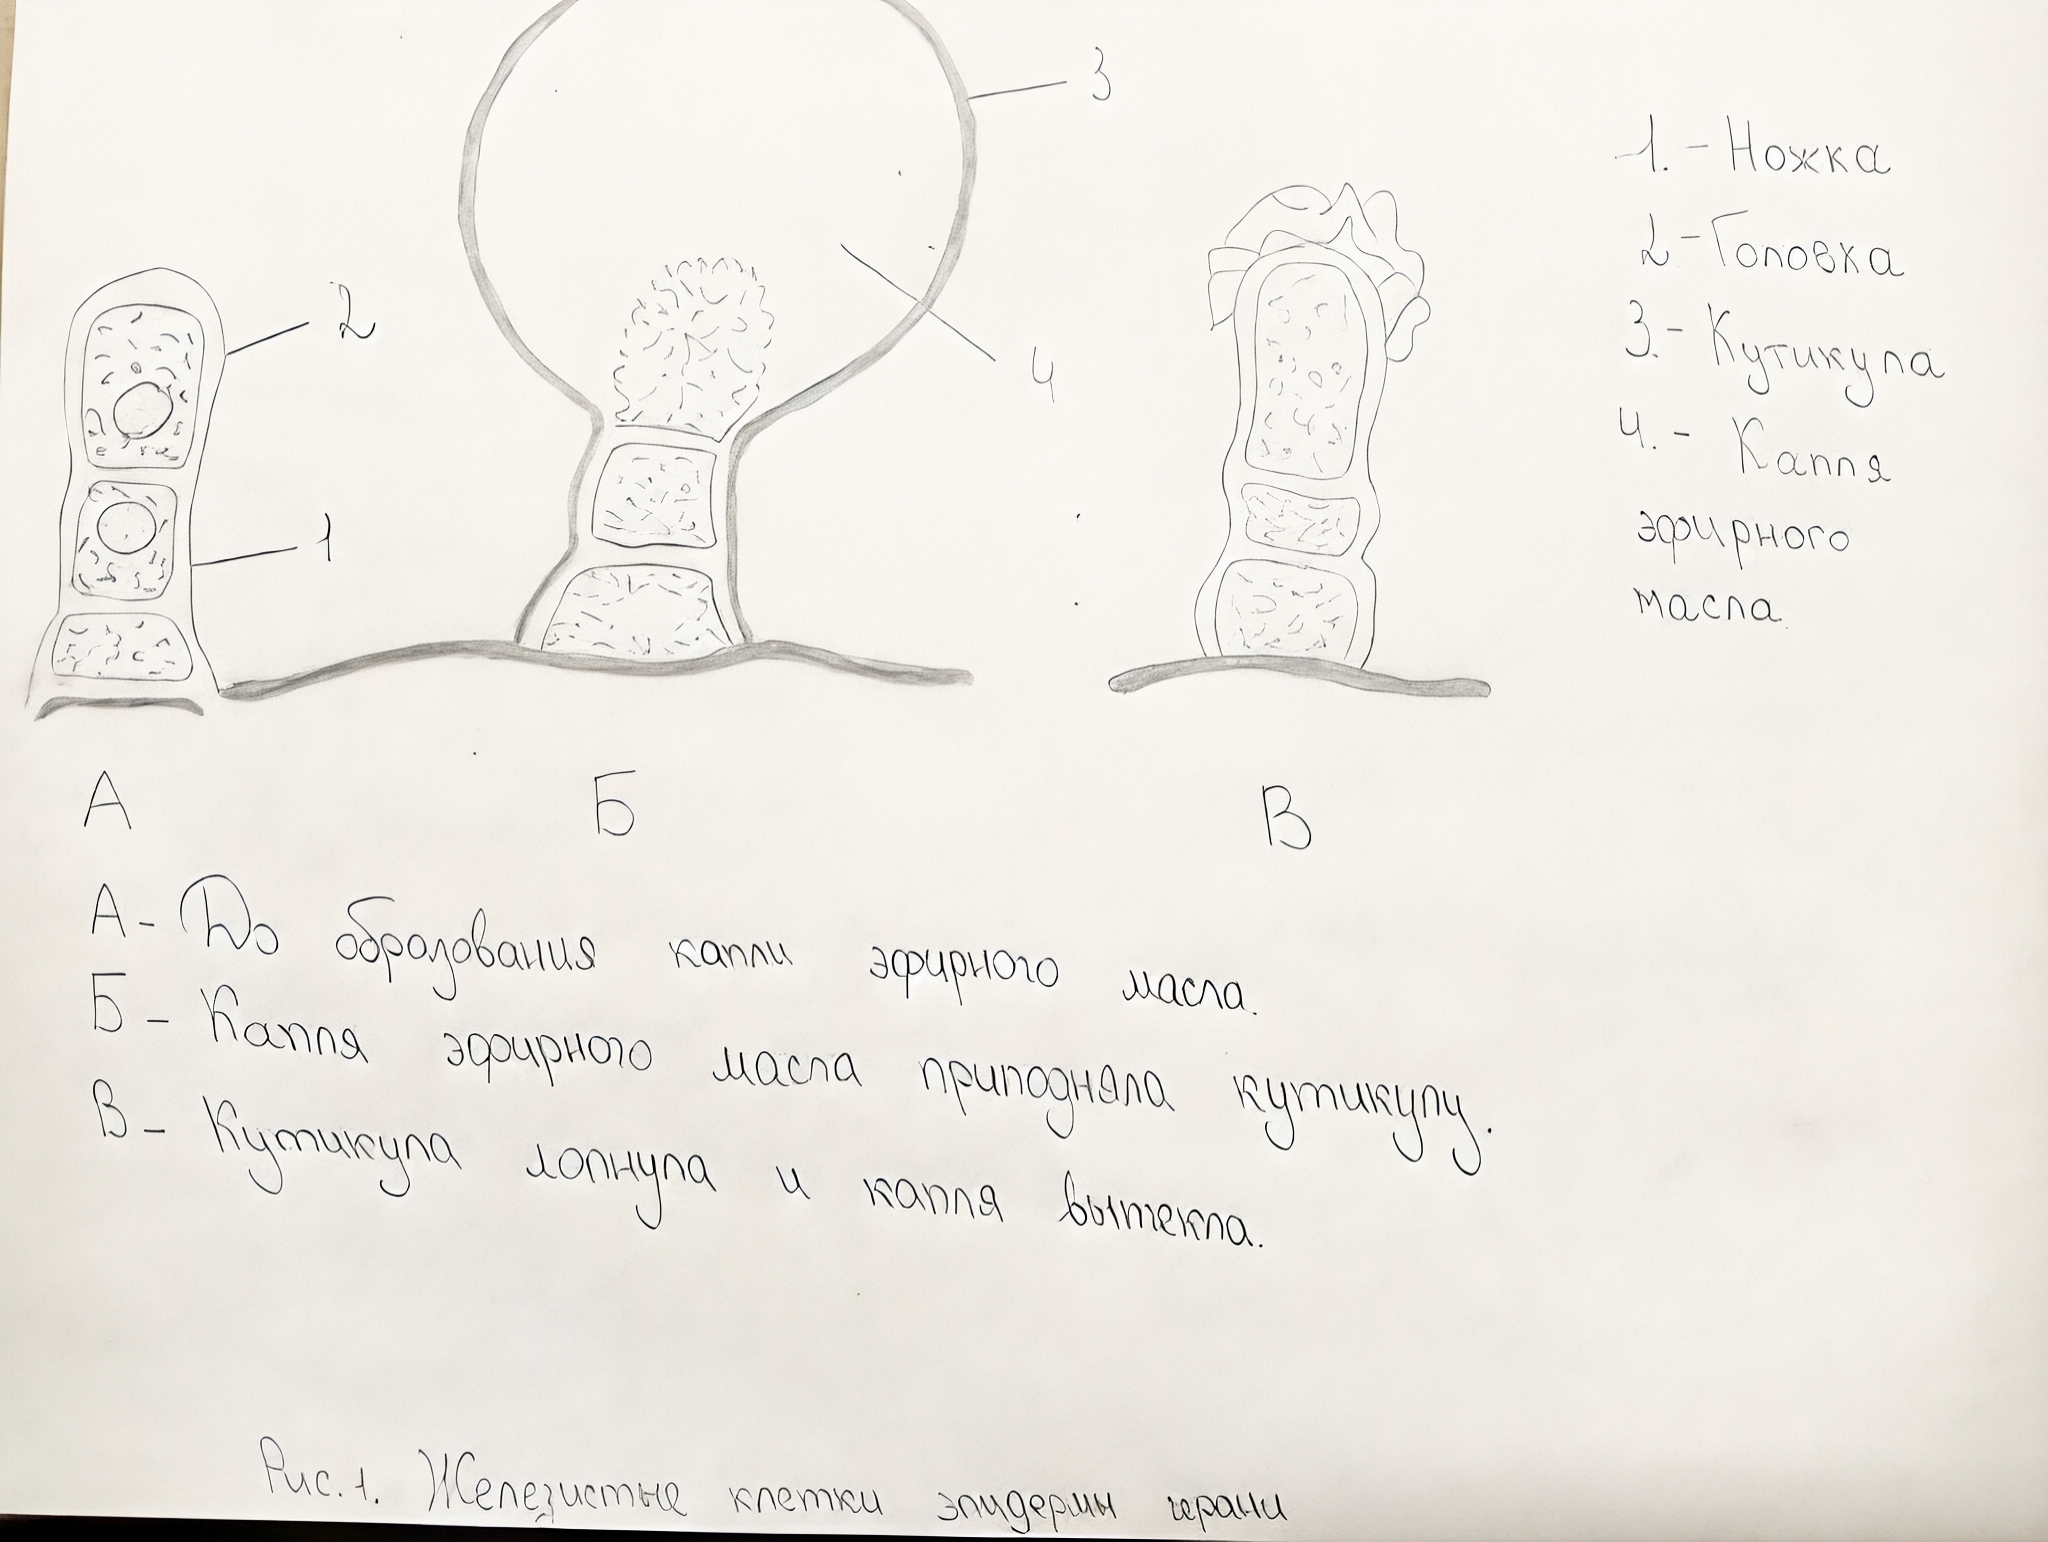 3
2
4
1
1. - Ножка
2 - Головка
3. - Кутикула
4. - Капля
эфирного
масла.
А
Б
В
А - До образования капли эфирного масла.
Б - Капля эфирного масла приподняла кутикулу.
В - Кутикула лопнула и капля вытекла.
Рис. 1. Железистые клетки эпидермы герани